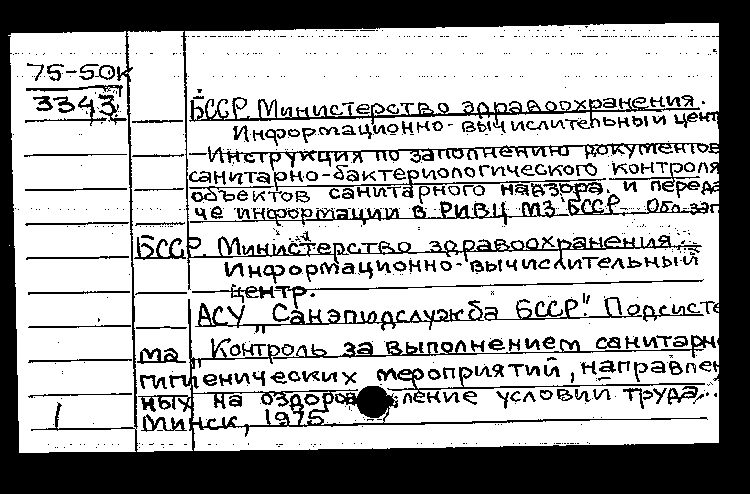 75-50к
3343
БССР. Министерство здравоохранения.
Информационно-вычислительный цент
Инструкция по заполнению документов
санитарно-бактериологического контроля
объектов санитарного надзора. и переда
че информации в РИВЦ МЗ БССР. Обл. заг
БССР. Министерство здравоохранения.
Информационно-вычислительный
центр.
АСУ "Санэпидслужба БССР." Подсисте
ма "Контроль за выполнением санитарн
гигиенических мероприятий, направлен
ных на оздоров ление условий труда...
1 Минск, 1975